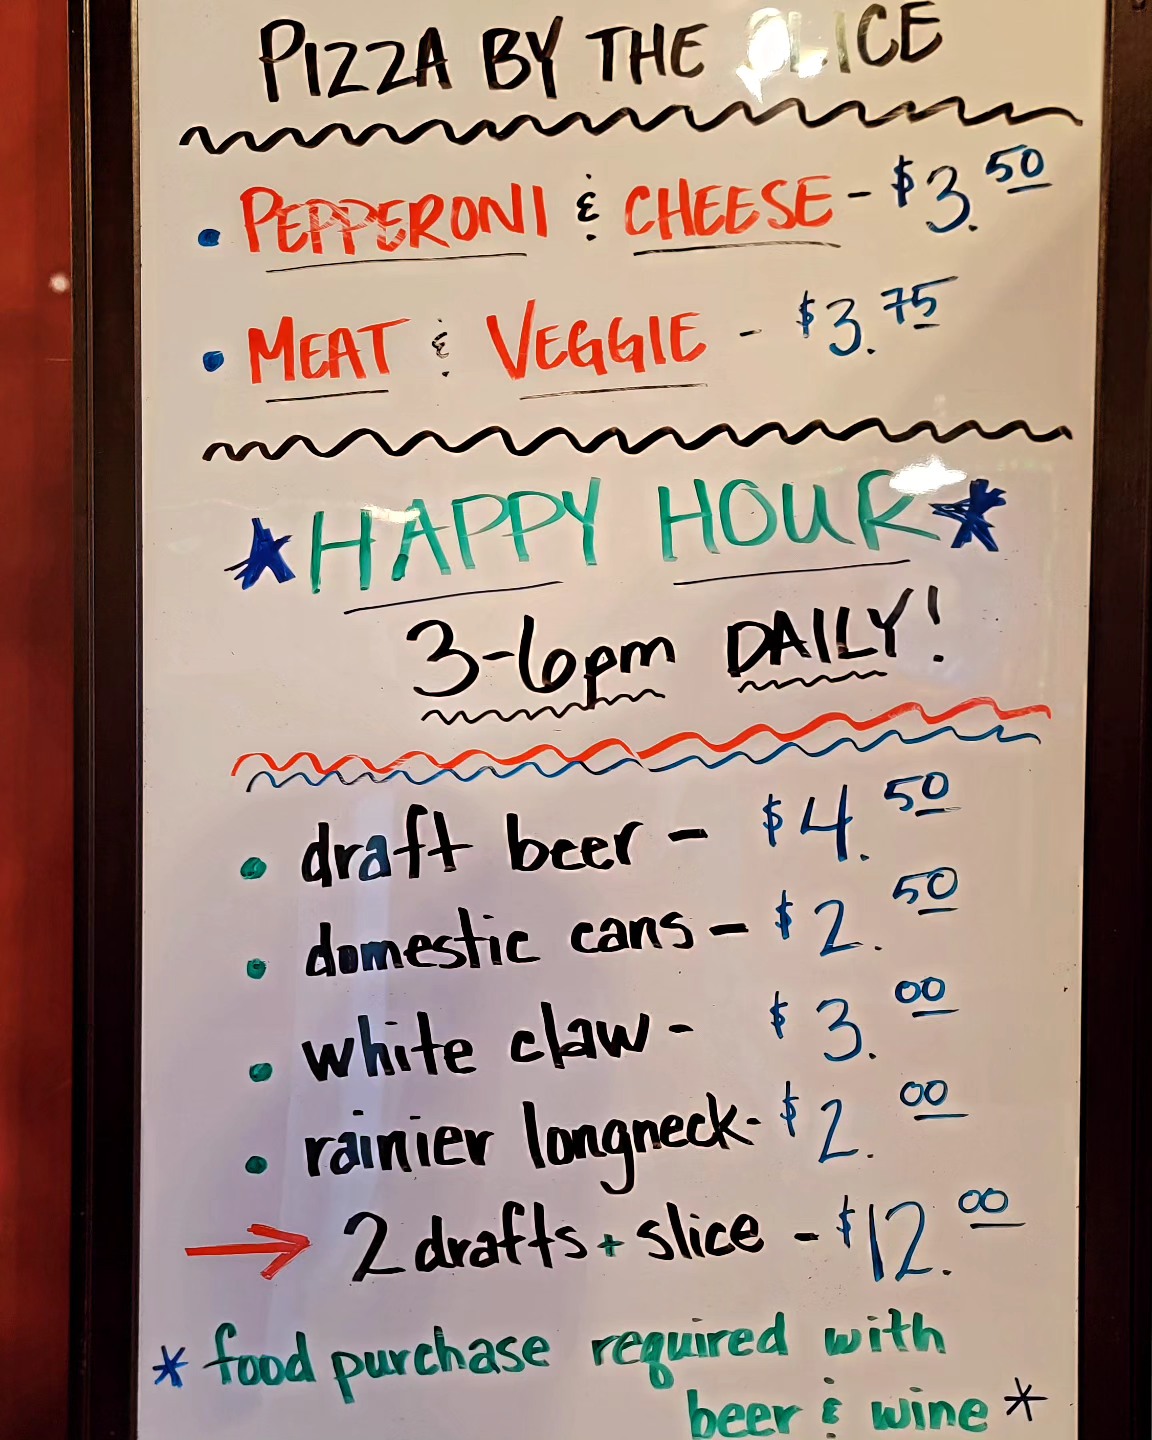 PIZZA BY THE SLICE
• PEPPERONI & CHEESE - $3.50
• MEAT & VEGGIE - $3.75
★ HAPPY HOUR ★
3-6pm DAILY!
• draft beer - $4.50
• domestic cans - $2.50
• white claw - $3.00
• rainier longneck - $2.00
→ 2 drafts + slice - $12.00
* food purchase required with
beer & wine *